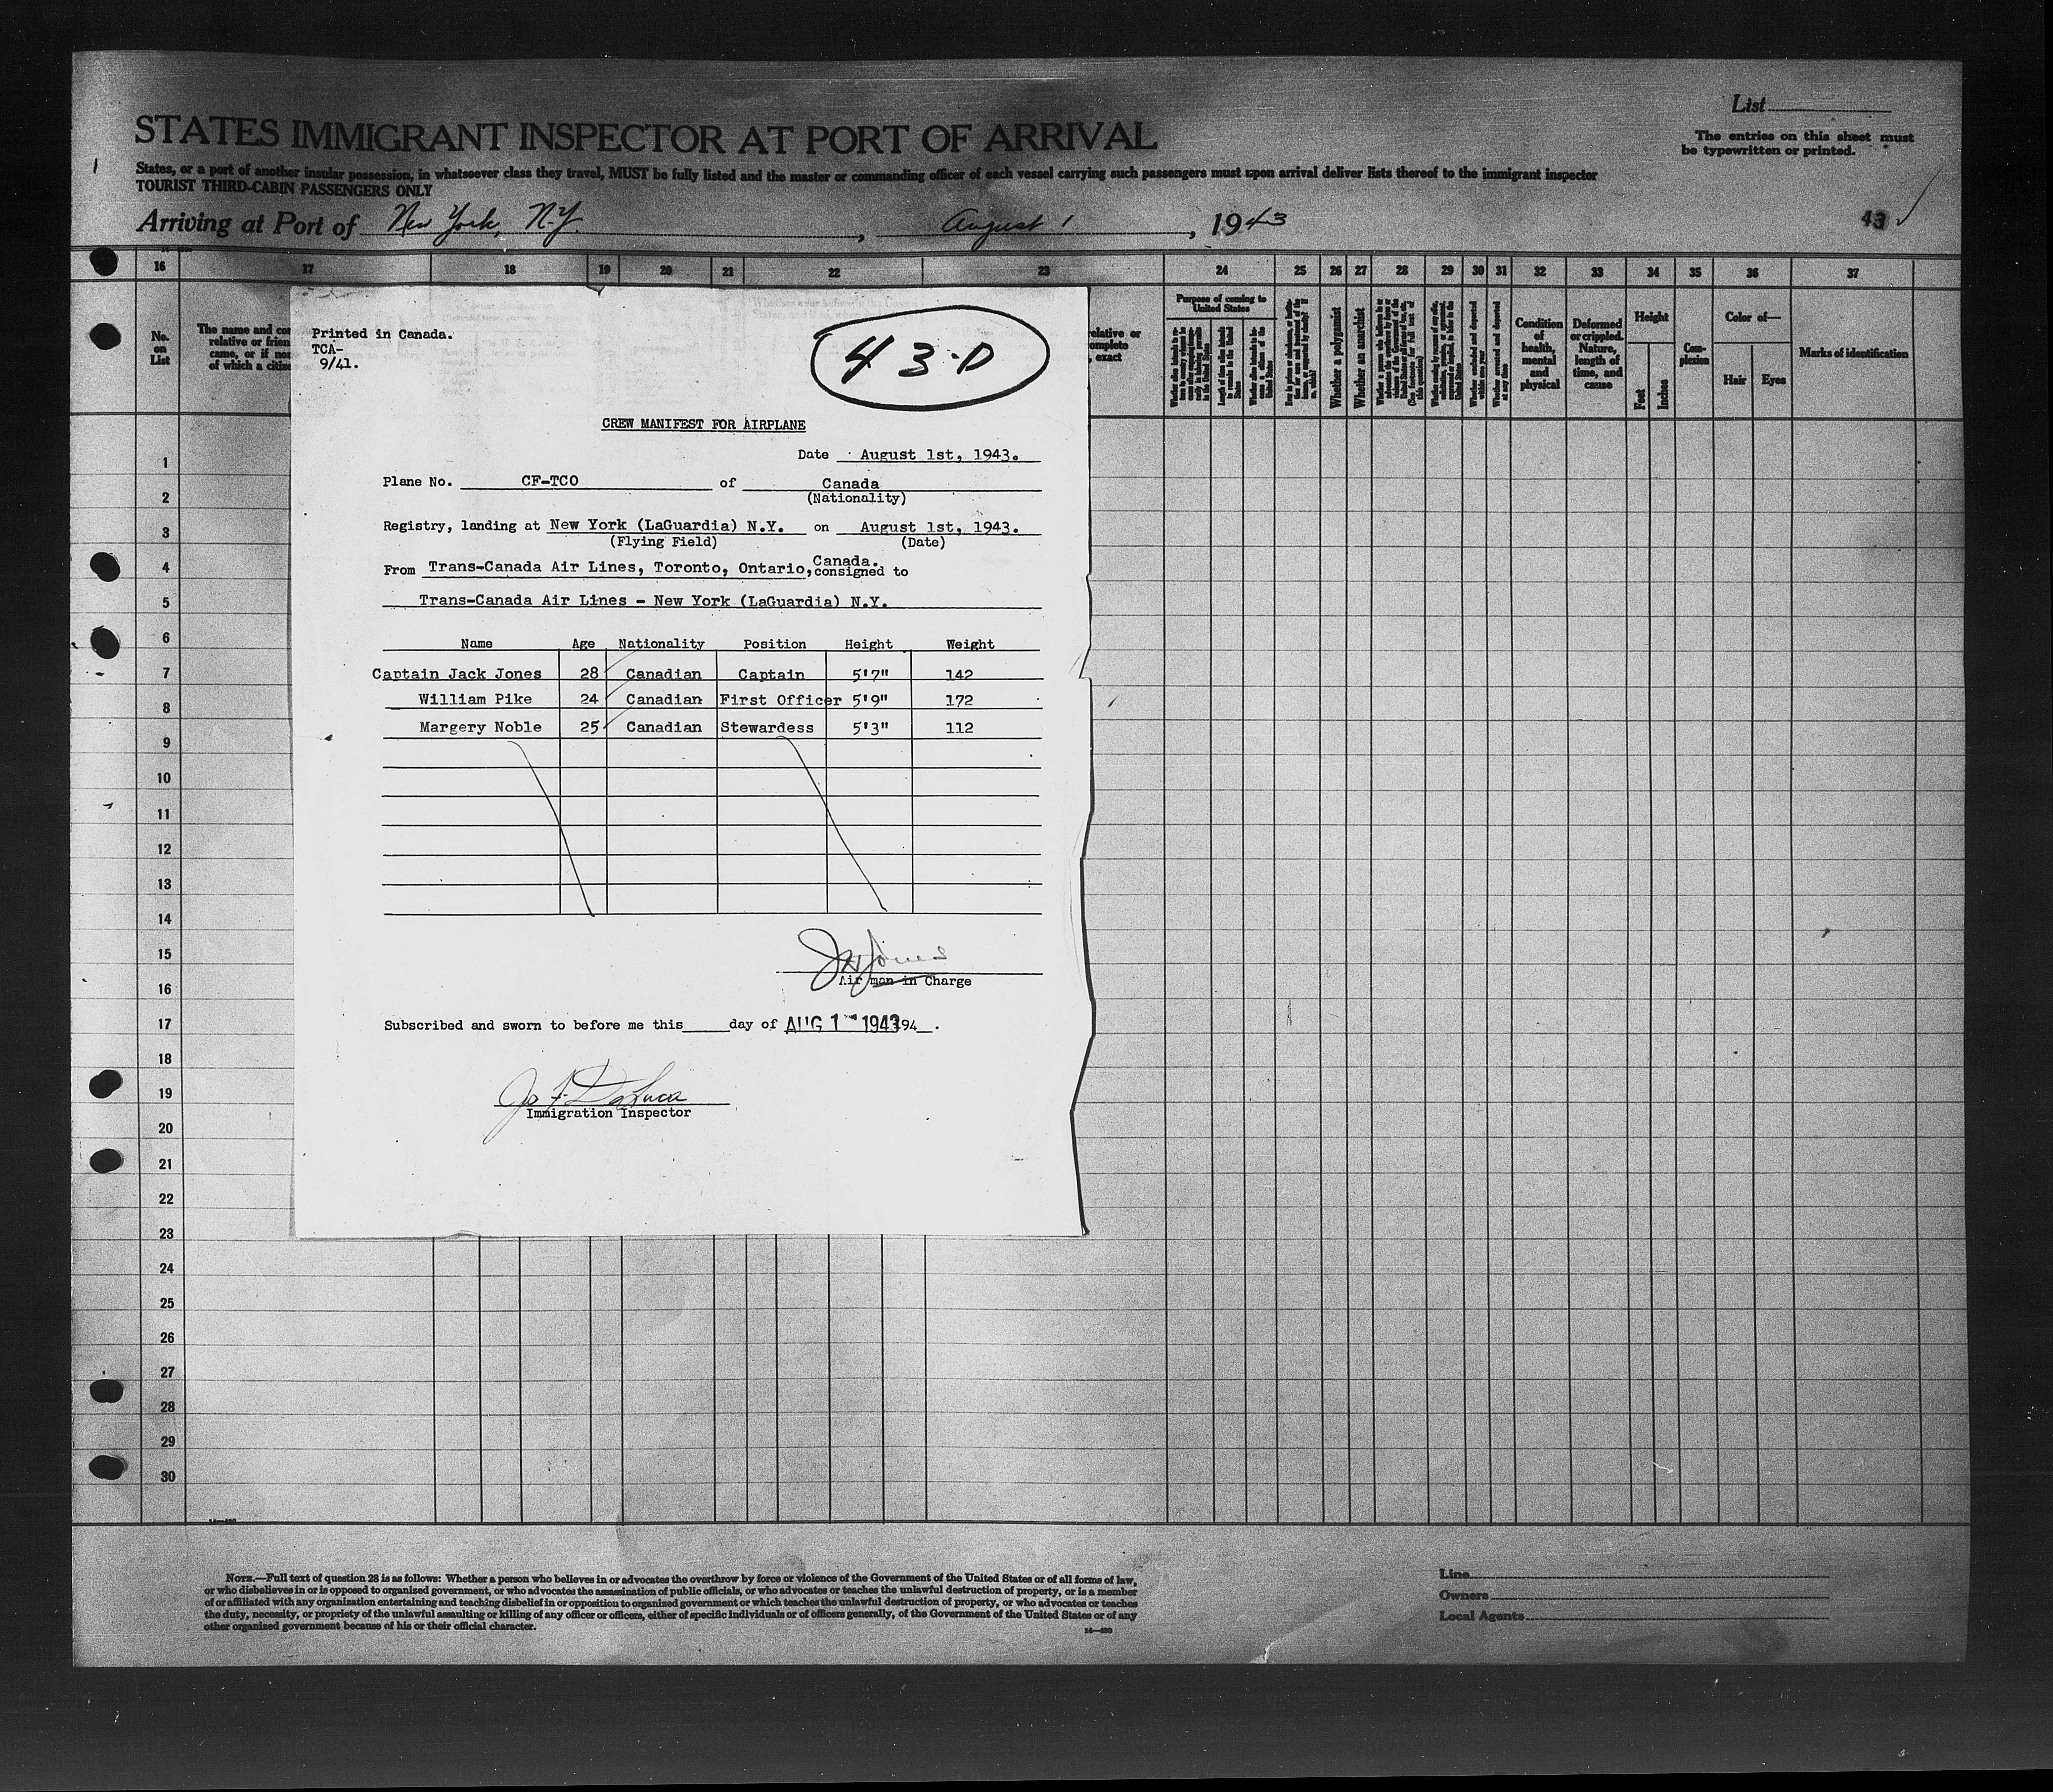 List
STATES IMMIGRANT INSPECTOR AT PORT OF ARRIVAL
The entries on this sheet must
be typewritten or printed.
States, or a port of another insular possession, in whatsoever class they travel, MUST be fully listed and the master or commanding officer of each vessel carrying such passengers must upon arrival deliver lists thereof to the immigrant inspector
TOURIST THIRD-CABIN PASSENGERS ONLY
Arriving at Port of New York, N.Y. , August 1 , 1943
43
16 17 18 19 20 21 22 23 24 25 26 27 28 29 30 31 32 33 34 35 36 37
No.
on
List
The name and
relative or
came, or if
of which a
relative or
complete
, exact
Purpose of coming to
United States
Whether a polygamist
Whether an anarchist
Condition
of
health,
mental
and
physical
Deformed
or crippled.
Nature,
length of
time, and
cause
Height
Feet
Inches
Com-
plexion
Color of—
Hair Eyes
Marks of identification
Printed in Canada.
TCA-
9/41.
43-D
CREW MANIFEST FOR AIRPLANE
Date August 1st, 1943.
Plane No. CF-TCO of Canada
(Nationality)
Registry, landing at New York (LaGuardia) N.Y. on August 1st, 1943.
(Flying Field) (Date)
From Trans-Canada Air Lines, Toronto, Ontario, Canada. consigned to
Trans-Canada Air Lines - New York (LaGuardia) N.Y.
Name Age Nationality Position Height Weight
Captain Jack Jones 28 Canadian Captain 5'7" 142
William Pike 24 Canadian First Officer 5'9" 172
Margery Noble 25 Canadian Stewardess 5'3" 112
Jones
Air man in Charge
Subscribed and sworn to before me this day of AUG 1 1943 94 .
Jo F. DeLuca
Immigration Inspector
1
2
3
4
5
6
7
8
9
10
11
12
13
14
15
16
17
18
19
20
21
22
23
24
25
26
27
28
29
30
NOTE.—Full text of question 28 is as follows: Whether a person who believes in or advocates the overthrow by force or violence of the Government of the United States or of all forms of law,
or who disbelieves in or is opposed to organized government, or who advocates the assassination of public officials, or who advocates or teaches the unlawful destruction of property, or is a member
of or affiliated with any organization entertaining and teaching disbelief in or opposition to organized government or which teaches the unlawful destruction of property, or who advocates or teaches
the duty, necessity, or propriety of the unlawful assaulting or killing of any officer or officers, either of specific individuals or of officers generally, of the Government of the United States or of any
other organized government because of his or their official character.
Line
Owners
Local Agents